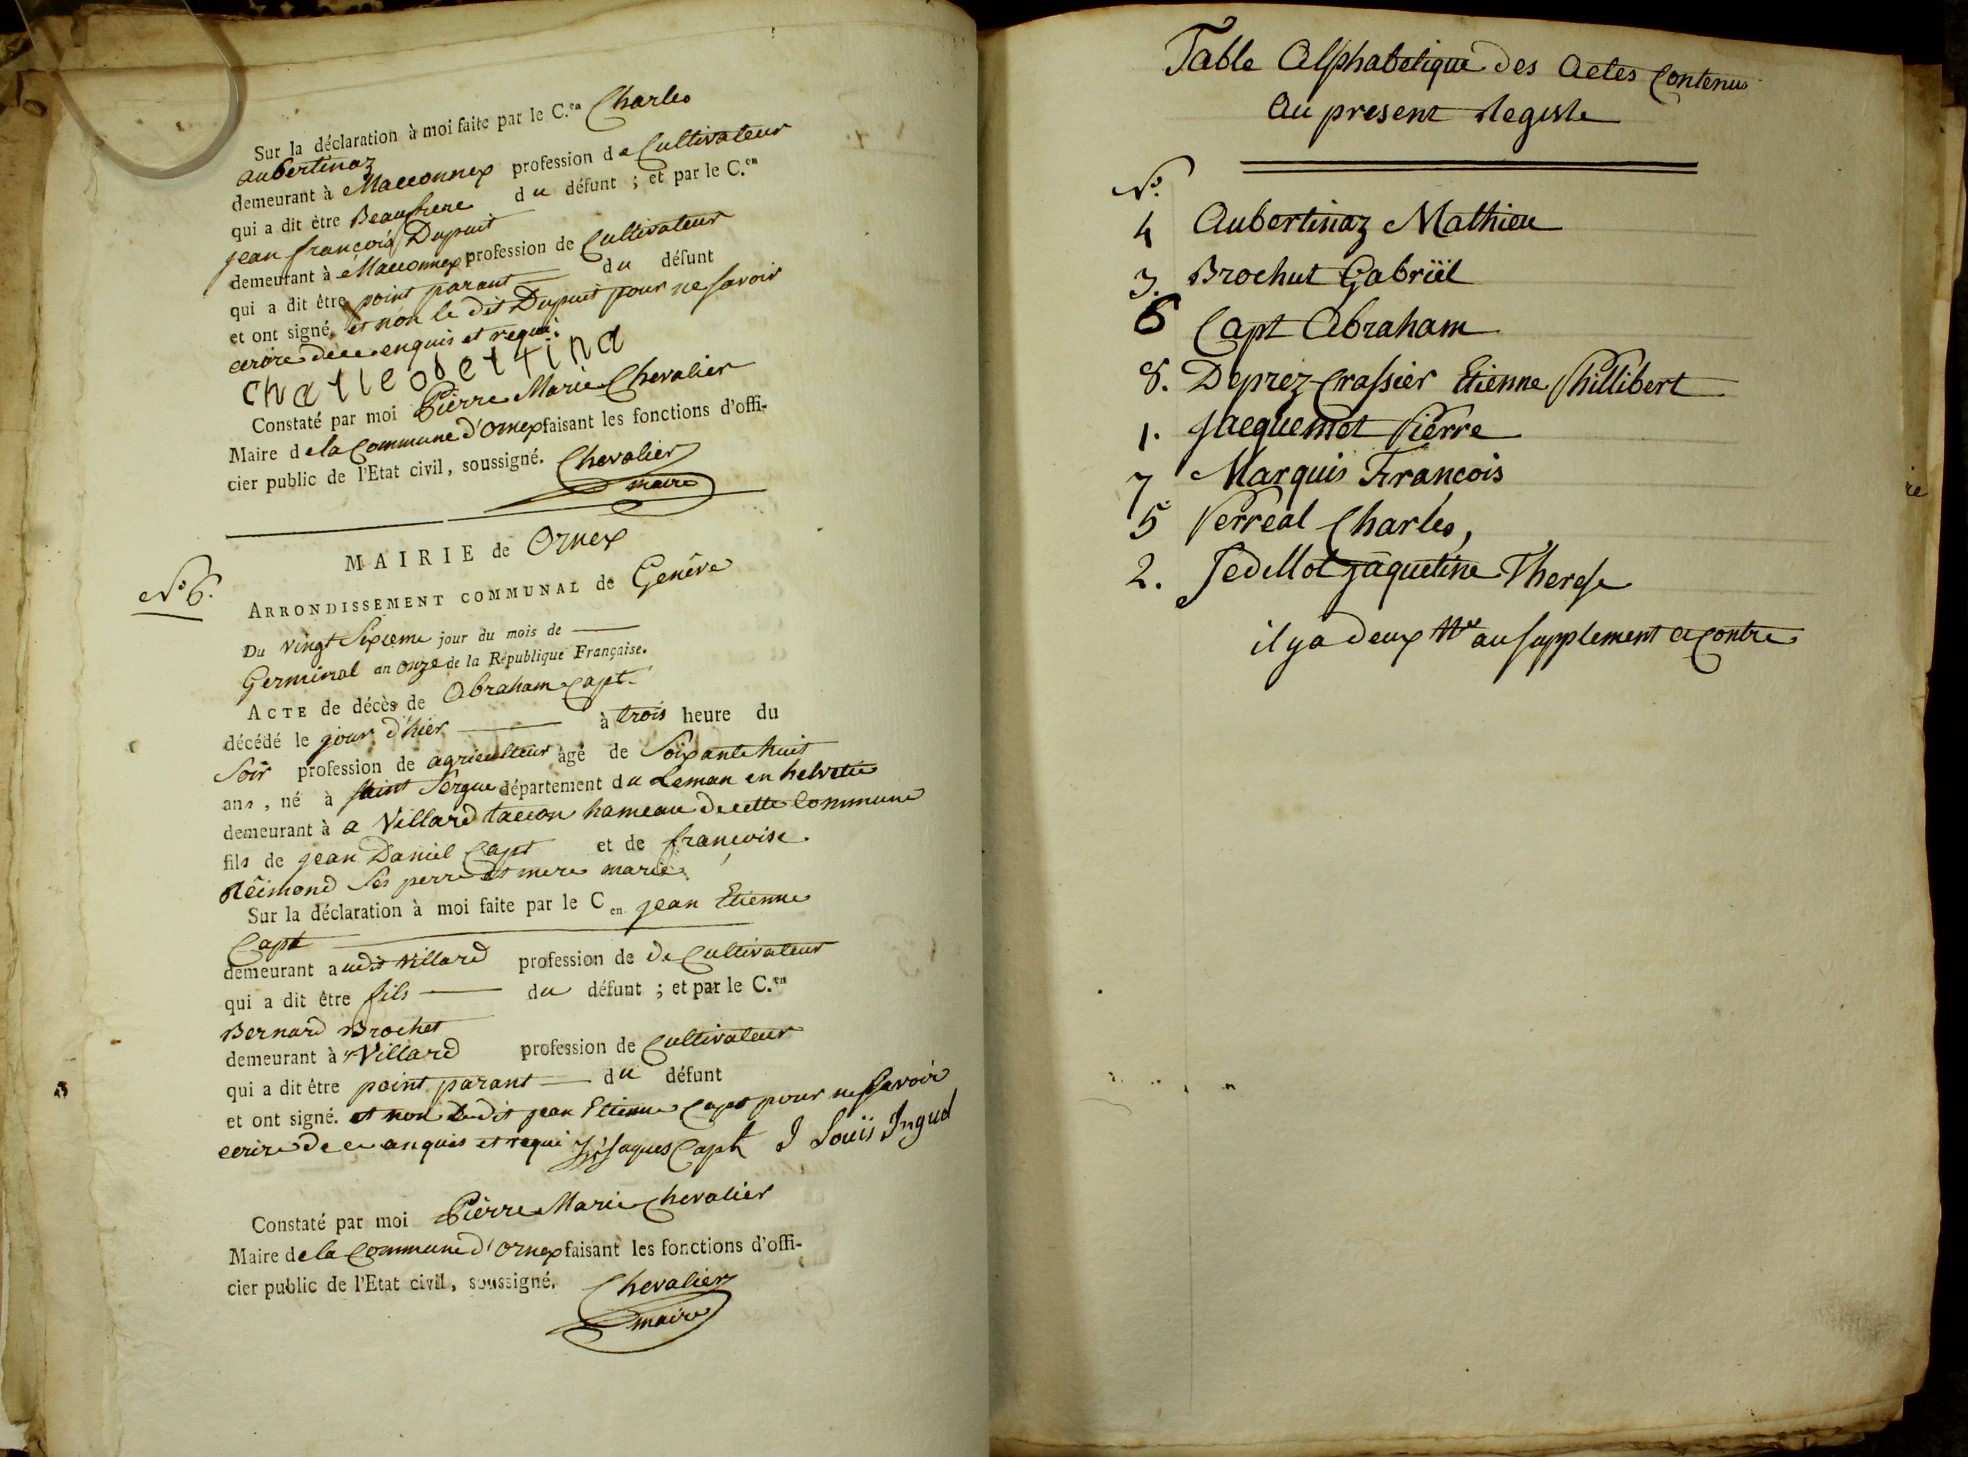 Sur la déclaration à moi faite par le C.en Charles
aubertinaz
demeurant à Maconnex profession de Cultivateur
qui a dit être Beaufrere du défunt ; et par le C.en
jean françois Dupuit
demeurant à Maconnex profession de Cultivateur
qui a dit être point parant du défunt
et ont signé. et non le dit Dupuit pour ne savoir
ecrire de ce enquis et requi.
Constaté par moi Pierre Marie Chevalier
Maire de la Commune d'Ornex faisant les fonctions d'offi-
cier public de l'Etat civil, soussigné. Chevalier
maire
MAIRIE de Ornex
No 6.
ARRONDISSEMENT COMMUNAL de Genêve
Du vingt Sixieme jour du mois de
Germinal an onze de la République Française.
ACTE de décès de Abraham Capt.
décédé le jour d'hier à trois heure du
Soir profession de agriculteur âgé de Soixante huit
ans, né à saint Sergue département du Leman en helvetie
demeurant à a Villard tacon hameau de cette Commune
fils de jean Daniel Capt et de françoise.
Réimond Ses perre et mere marié
Sur la déclaration à moi faite par le C en jean Etienne
Capt
demeurant audit Villard profession de de Cultivateur
qui a dit être fils du défunt ; et par le C.en
Bernard Brochet
demeurant à Villard profession de Cultivateur
qui a dit être point parant du défunt
et ont signé. et non Ledit jean Etienne Capt pour ne savoir
ecrire de ce anquis et requi Jaques Capt J Louïs Ingud
Constaté par moi Pierre Marie Chevalier
Maire de la Commune d'Ornex faisant les fonctions d'offi-
cier public de l'Etat civil, soussigné. Chevalier
maire
Table Alphabetique des Actes Contenus
Au present Registe
No.
4 Aubertinaz Mathieu
3. Brochut Gabriël
6 Capt Abraham
8. Deprez Crassier Etienne Phillibert
1. Jacquemet Pierre
7 Marquis François
5 Perréal Charles,
2. Sedillot jaquetine Therese
il y a deux No au supplement a Contre